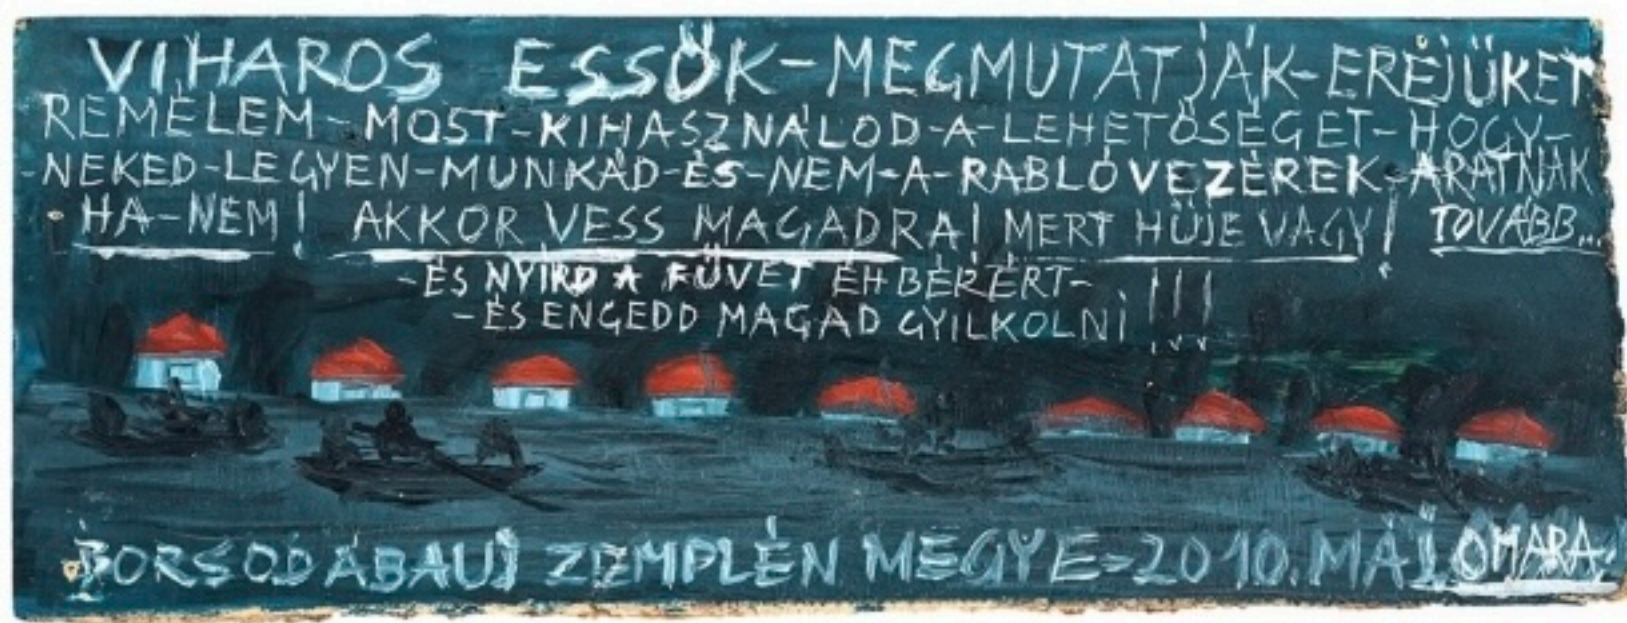 VIHAROS ESSŐK-MEGMUTATJÁK-EREJŰKET
REMÉLEM-MOST-KIHASZNÁLOD-A-LEHETŐSÉGET-HOGY-
-NEKED-LEGYEN-MUNKÁD-ÉS-NEM-A-RABLÓVEZÉREK-ARATNAK
HA-NEM! AKKOR VESS MAGADRA! MERT HÜJE VAGY! TOVÁBB...
-ÉS NYIRD A FÜVET ÉHBÉRÉRT-
-ÉS ENGEDD MAGAD GYILKOLNI!!!
BORSODÁBAUJ ZEMPLÉN MEGYE=2010.MÁJ OMARA.